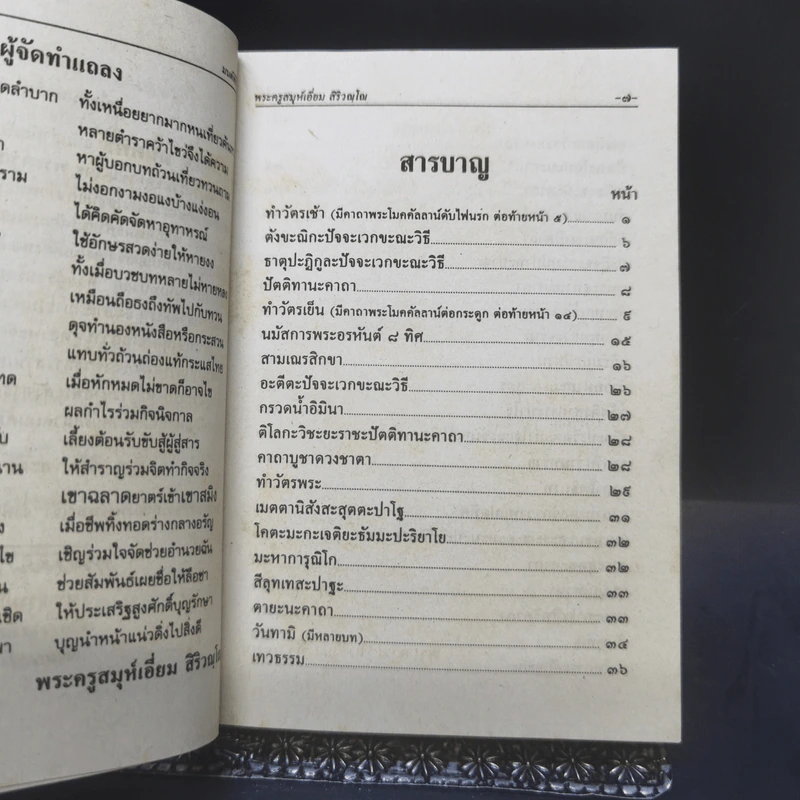 ผู้จัดทำแถลง
ทั้งเหนื่อยยากมากหนเที่ยวค้น
หลายตำราคว้าไขว่จึงได้ความ
หาผู้บอกบทถ้วนเที่ยวทวนถาม
ไม่งอกงามงอแงบ้างแง่งอน
ได้คิดคัดจัดหาอุทาหรณ์
ใช้อักษรสวดง่ายให้หายงง
ทั้งเมื่อบวชบทหลายไม่หายหลง
เหมือนถือธงถึงทัพไปกับทวน
ดุจทำนองหนังสือหรือกระสวน
แทบทั่วถ้วนถ่องแท้กระแสไทย
เมื่อหักหมดไม่ขาดก็อาจไข
ผลกำไรร่วมกิจนิจกาล
เลี้ยงต้อนรับขับสู้ผู้สู่สาร
ให้สำราญร่วมจิตทำกิจจริง
เขาฉลาดยาตร์เข้าเขาสมิง
เมื่อชีพทิ้งทอดร่างกลางอรัญ
เชิญร่วมใจจัดช่วยอำนวยฉัน
ช่วยสัมพันธ์เผยชื่อให้ลือชา
ให้ประเสริฐสูงศักดิ์บุญรักษา
บุญนำหน้าแน่วดิ่งไปสิ่งดี
พระครูสมุห์เอี่ยม สิริวณฺโณ
พระครูสมุห์เอี่ยม สิริวณฺโณ -๗-
สารบาญ
หน้า
ทำวัตรเช้า (มีคาถาพระโมคคัลลาน์ดับไฟนรก ต่อท้ายหน้า ๕) ๑
ตังขะณิกะปัจจะเวกขะณะวิธี ๖
ธาตุปะฏิกูละปัจจะเวกขะณะวิธี ๗
ปัตติทานะคาถา ๘
ทำวัตรเย็น (มีคาถาพระโมคคัลลาน์ต่อกระดูก ต่อท้ายหน้า ๑๔) ๙
นมัสการพระอรหันต์ ๘ ทิศ ๑๕
สามเณรสิกขา ๑๖
อะตีตะปัจจะเวกขะณะวิธี ๒๖
กรวดน้ำอิมินา ๒๗
ติโลกะวิชะยะราชะปัตติทานะคาถา ๒๘
คาถาบูชาดวงชาตา ๒๘
ทำวัตรพระ ๒๙
เมตตานิสังสะสุตตะปาโฐ ๓๑
โคตะมะกะเจติยะธัมมะปะริยาโย ๓๒
มะหาการุณิโก ๓๒
สีลุทเทสะปาฐะ ๓๓
ตายะนะคาถา ๓๓
วันทามิ (มีหลายบท) ๓๔
เทวธรรม ๓๖